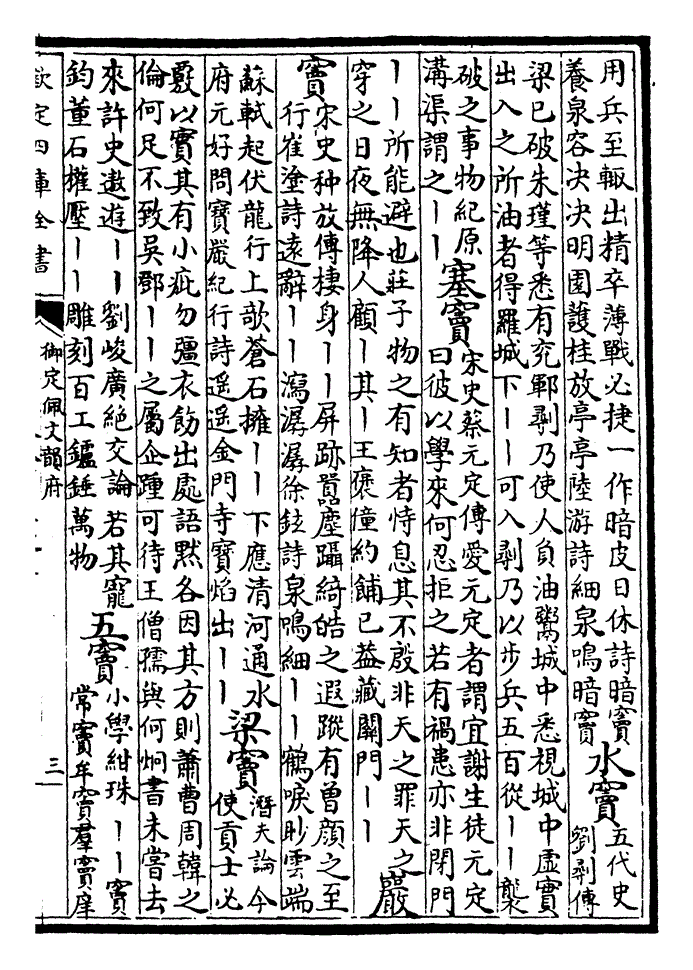 用兵至輙出精卒薄戰必捷一作暗皮日休詩暗竇
養泉容决决明園護桂放亭亭陸游詩細泉鳴暗竇
水竇
五代史
劉鄩傳
梁已破朱瑾等悉有兖鄆鄩乃使人負油鬻城中悉視城中虛實
出入之所油者得羅城下丨丨可入鄩乃以步兵五百從丨丨襲
破之事物紀原
溝渠謂之丨丨
塞竇
宋史蔡元定傳愛元定者謂宜謝生徒元定
曰彼以學來何忍拒之若有禍患亦非閉門
丨丨所能避也莊子物之有知者恃息其不殷非天之罪天之
穿之日夜無降人顧丨其丨王褒僮約餔已葢藏關門丨丨
巖
竇
宋史种放傳棲身丨丨屏跡囂塵躡綺皓之遐蹤有曾顔之至
行崔塗詩遠辭丨丨瀉潺潺徐鉉詩泉鳴細丨丨鶴唳眇雲端
蘇軾起伏龍行上欹蒼石擁丨丨下應清河通水
府元好問寶嚴紀行詩遥遥金門寺寶焰出丨丨
梁竇
潛夫論今
使貢士必
覈以實其有小疵勿彊衣飭出處語默各因其方則蕭曹周韓之
倫何足不致吳鄧丨丨之屬企踵可待王僧孺與何炯書未嘗去
來許史遨遊丨丨劉峻廣絶交論若其寵
鈞董石權壓丨丨雕刻百工鑪錘萬物
五竇
小學紺珠丨丨竇
常竇牟竇羣竇庠
欽定四庫全書
御定佩文韻府
三